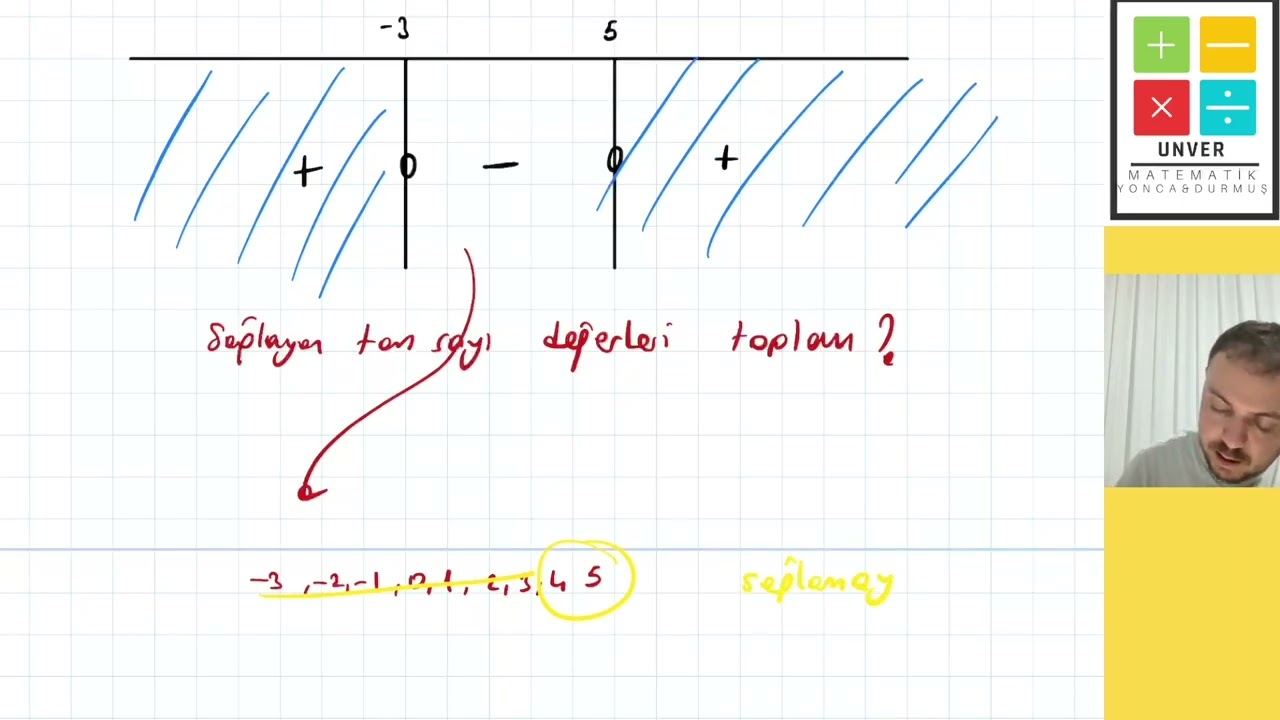 -3 5
+ 0 - 0 +
Sağlayan tam sayı değerleri toplam ?
-3 , -2, -1 , 0, 1, 2, 3, 4, 5 sağlamay
+ −
× ÷
UNVER
MATEMATİK
YONCA&DURMUŞ